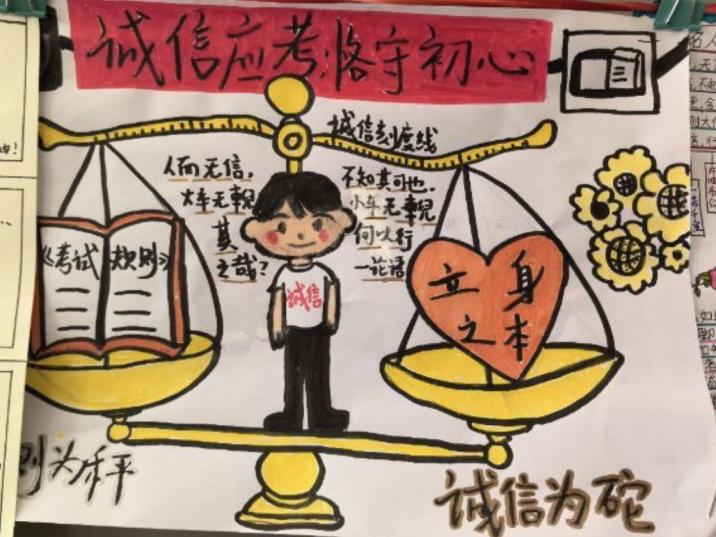 诚信应考,恪守初心
诚信刻度线
人而无信,
不知其可也,
大车无輗
小车无軏
其
何以行
之哉?
一论语
《考试规则》
诚信
立身
之本
则为秤
诚信为砣